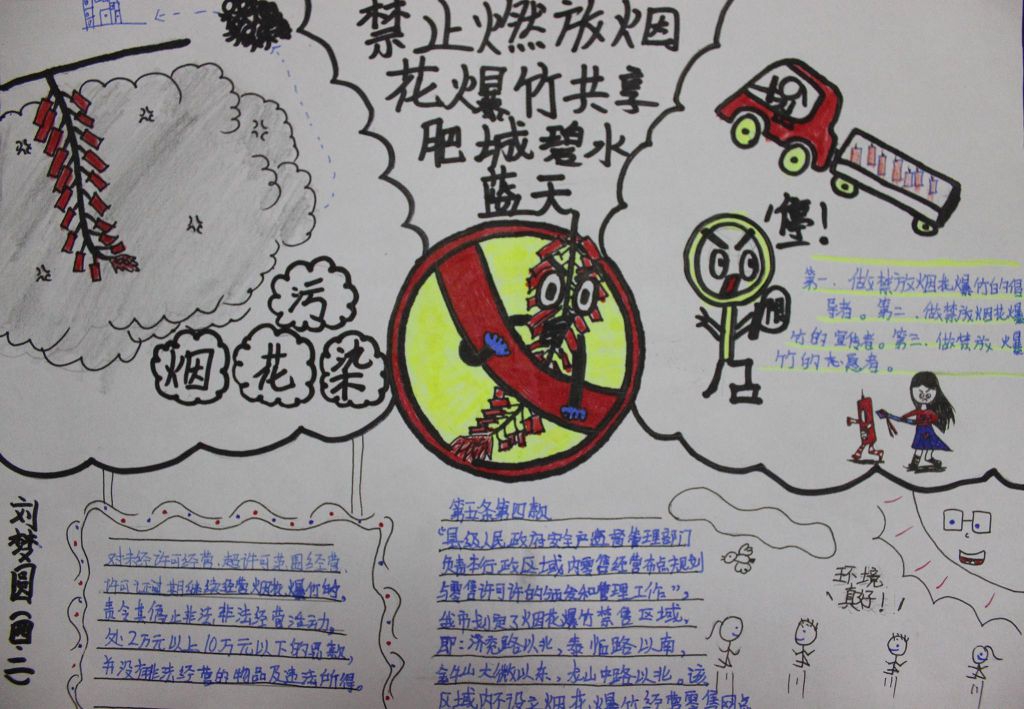 禁止燃放烟
花爆竹共享
肥城碧水
蓝天
污
烟花染
哼!
第一、做禁放烟花爆竹的倡
导者。第二、做禁放烟花爆
竹的宣传者。第三、做禁放爆
竹的志愿者。
刘梦圆(四·二)
对未经许可经营、超许可范围经营、
许可证过期继续经营烟花爆竹的,
责令其停止非法经营活动,
处2万元以上10万元以下的罚款,
并没收非法经营的物品及违法所得。
第五条第四款
“县级人民政府安全产监督管理部门
负责本行政区域内零售经营布点规划
与零售许可证的颁发和管理工作”,
我市划定了烟花爆竹禁售区域,
即:济兖路以北,泰临路以南,
金牛山大街以东,龙山中路以北。该
区域内不设立烟花爆竹经营零售网点
环境
真好!